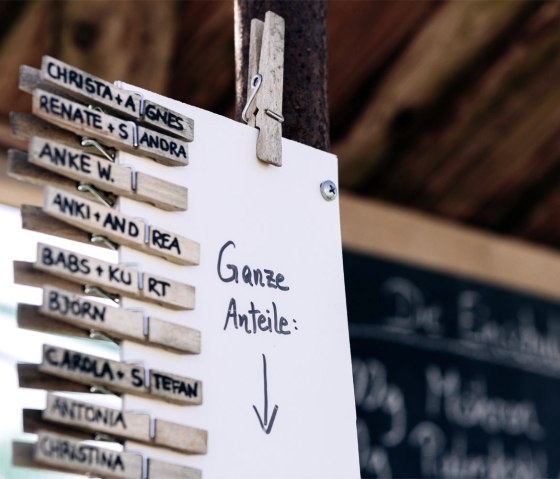 CHRISTA + AGNES
RENATE + SANDRA
ANKE W.
ANKI + ANDREA
BABS + KURT
BJÖRN
CAROLA + STEFAN
ANTONIA
CHRISTINA
Ganze
Anteile:
Die